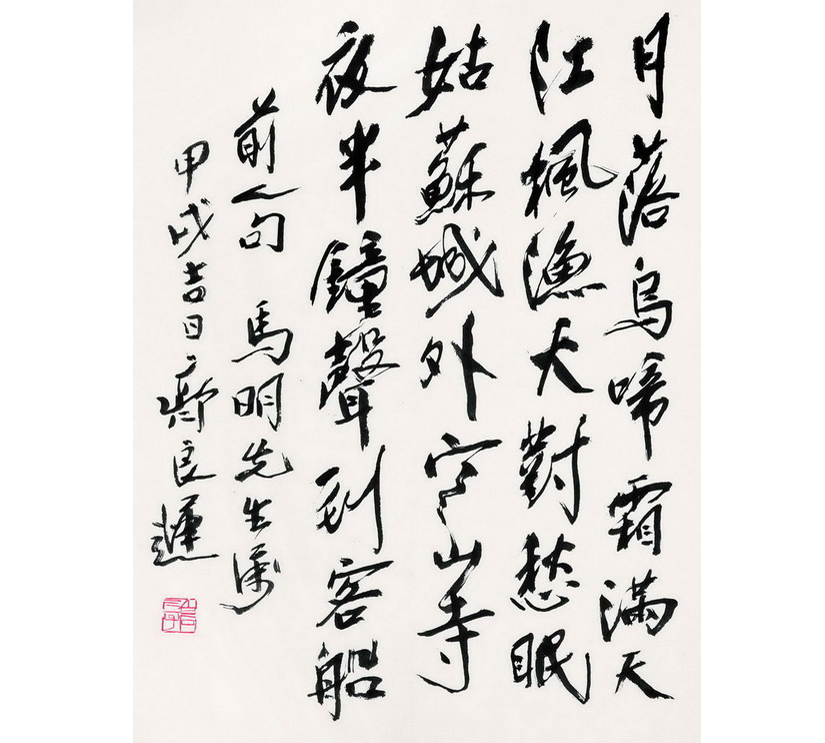 月落烏啼霜滿天
江楓漁火對愁眠
姑蘇城外寒山寺
夜半鐘聲到客船
前人句 馬明先生屬
甲戌吉日齊良遲